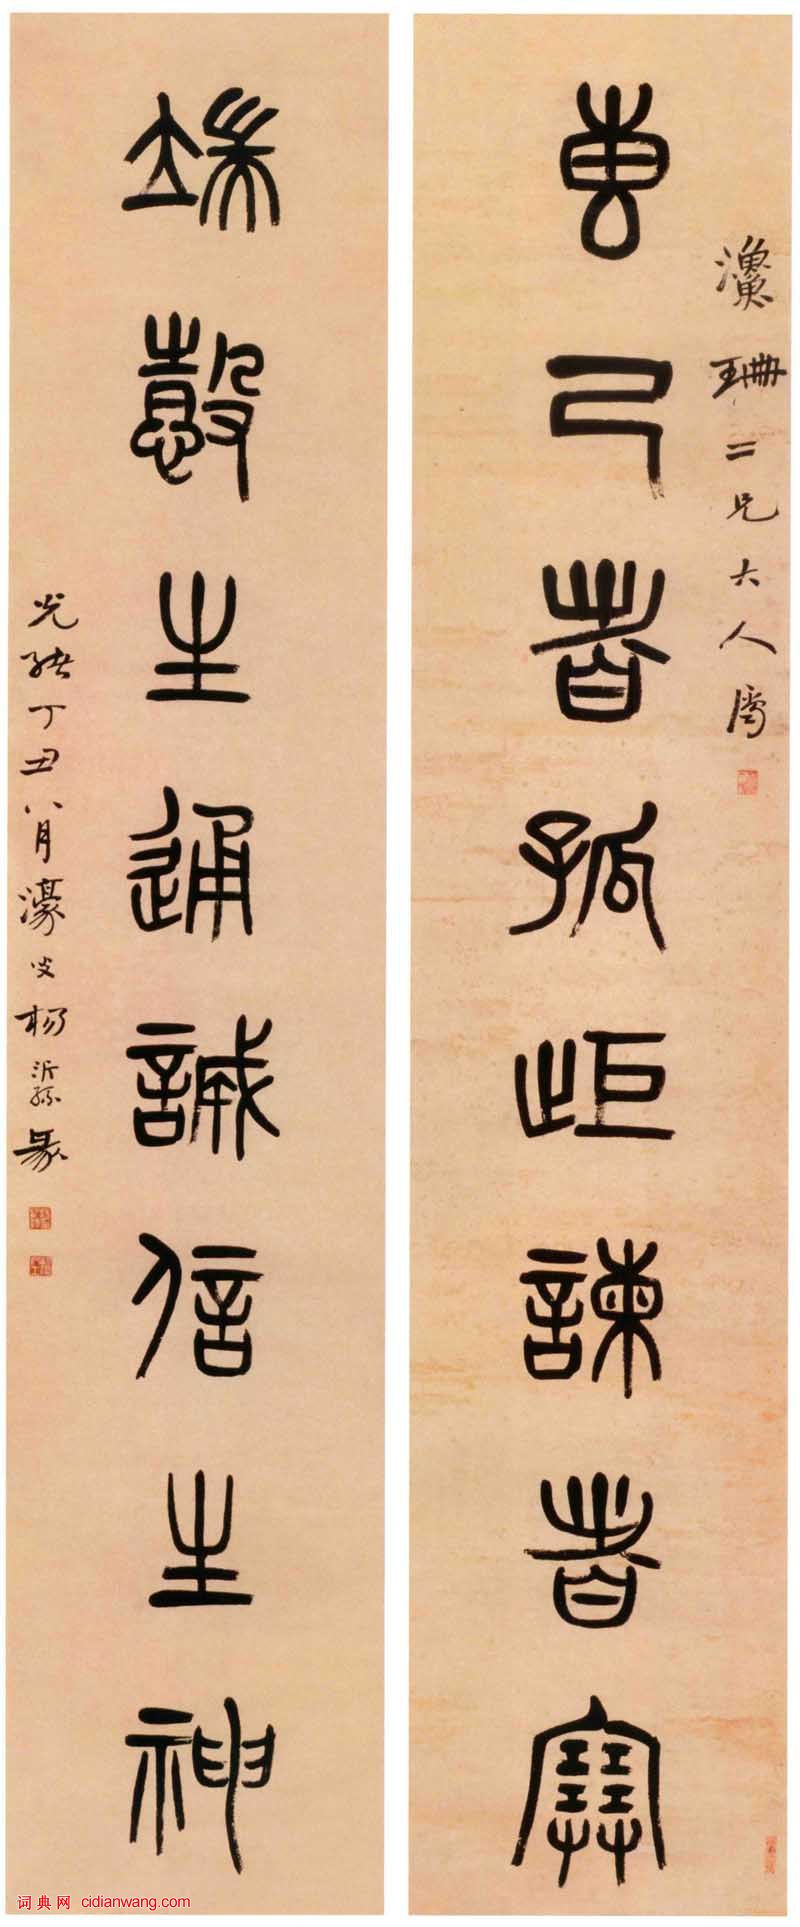 漁珊二兄大人屬
專己者孤歫諫者塞
端愨生通誠信生神
光緒丁丑八月濠叟楊沂孫篆
词典网 cidianwang.com